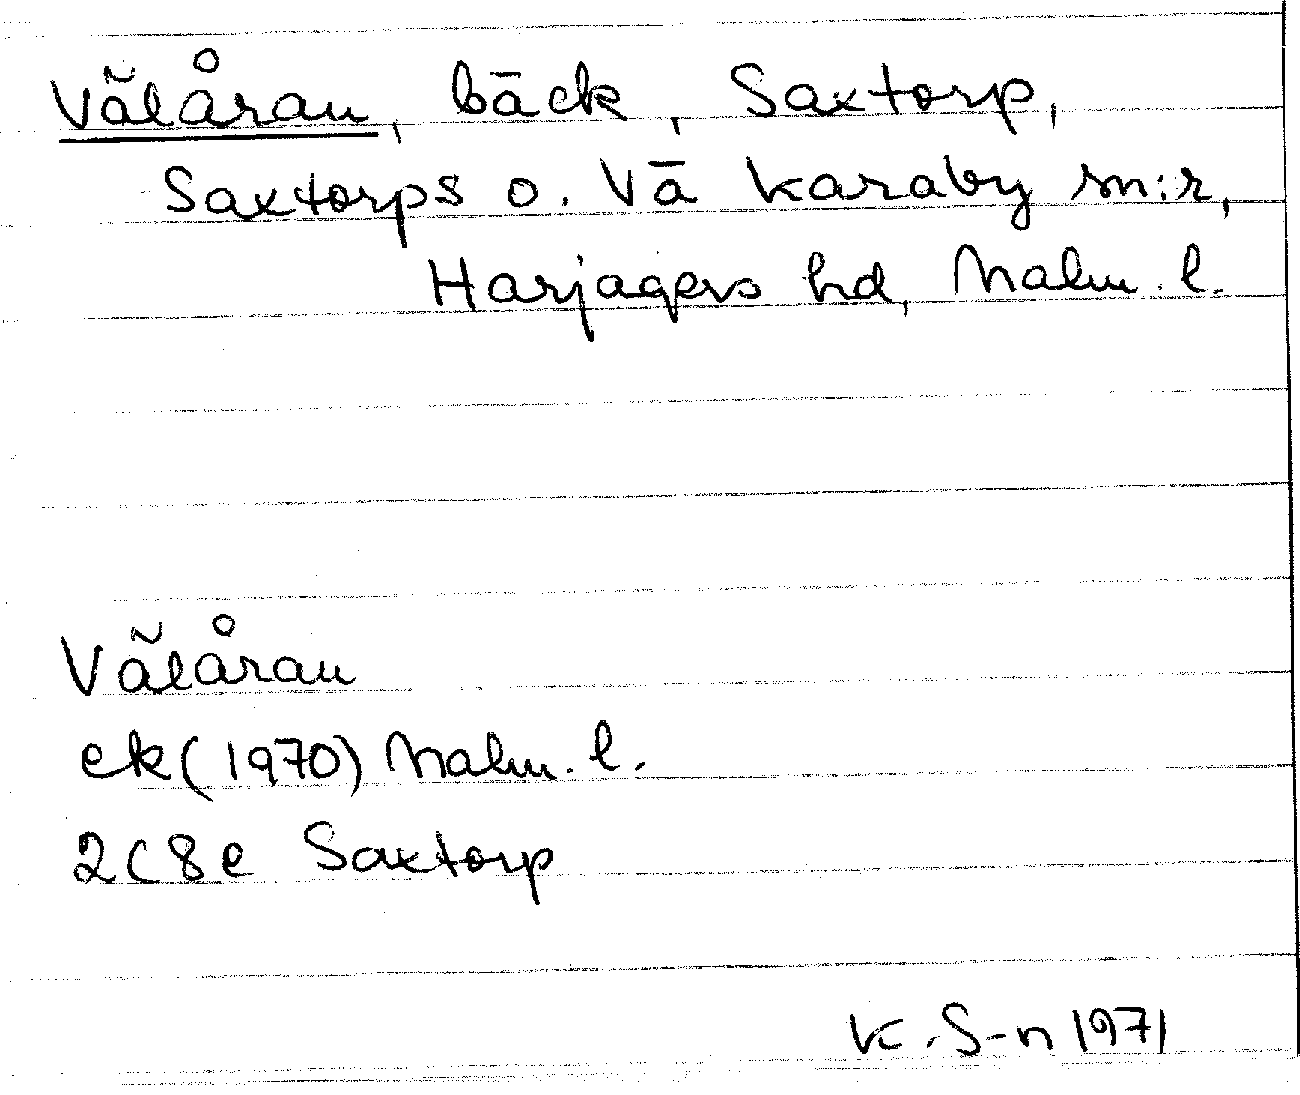 Välåran, bäck, Saxtorp,
Saxtorps o. Vä Karaby sn:r,
Harjagers hd, Malm. l.
Välåran
ek (1970) Malm. l.
2C8e Saxtorp
K. S-n 1971